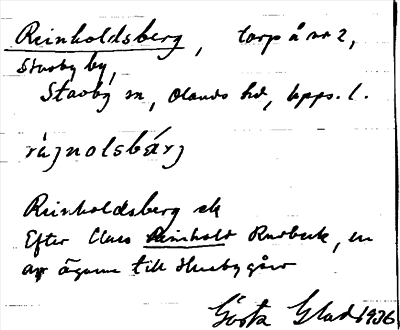 Reinholdsberg, torp å nr 2,
Stavby by,
Stavby sn, Olands hd, Upps. l.
rájnolsbárj
Reinholdsberg ek
Efter Claes Reinhold Rudbeck, en
av ägarna till Husbygård
Gösta Glad 1936